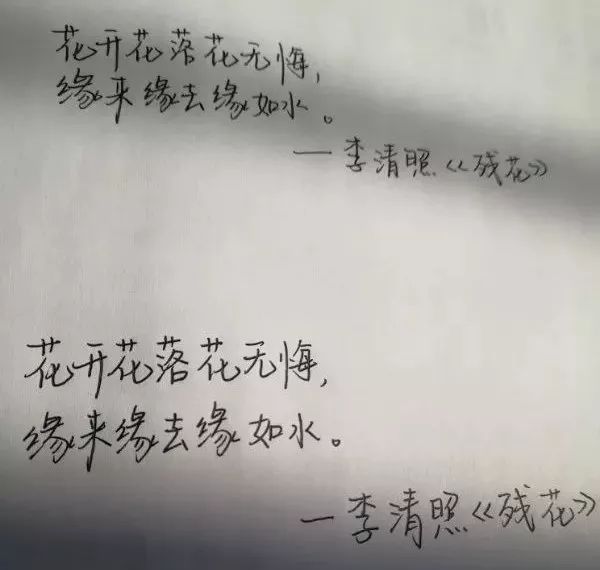 花开花落花无悔,
缘来缘去缘如水。
—李清照《残花》
花开花落花无悔,
缘来缘去缘如水。
—李清照《残花》